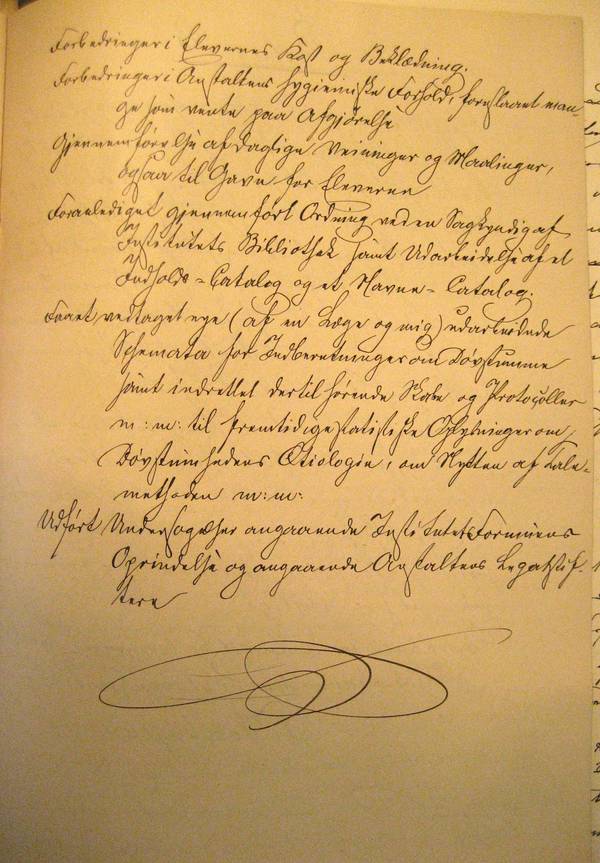 Forbedringer i Elevernes Kost og Beklædning.
Forbedringer i Anstaltens hygieiniske Forhold, foruden man-
ge som vente paa Afgjørelse
Gjennemførelse af daglige Veininger og Maalinger,
ogsaa til Gavn for Eleverne
Foranlediget gjennemført Ordning ved en Sagkyndig af
Institutets Bibliothek samt Udarbeidelse af et
Indholds-Catalog og et Navne-Catalog.
Faaet vedtaget nye (af en Læge og mig) udarbeidede
Schemata for Indberetninger om Døvstumme
samt indrettet dertil hørende Skabe og Protocoller
m: m: til fremtidige statistiske Oplysninger om
Døvstumhedens Ætiologie, om Nytten af Tale-
methoden m: m:
Udført Undersøgelser angaaende Institutets Formues
Oprindelse og angaaende Anstaltens Legatstif-
tere